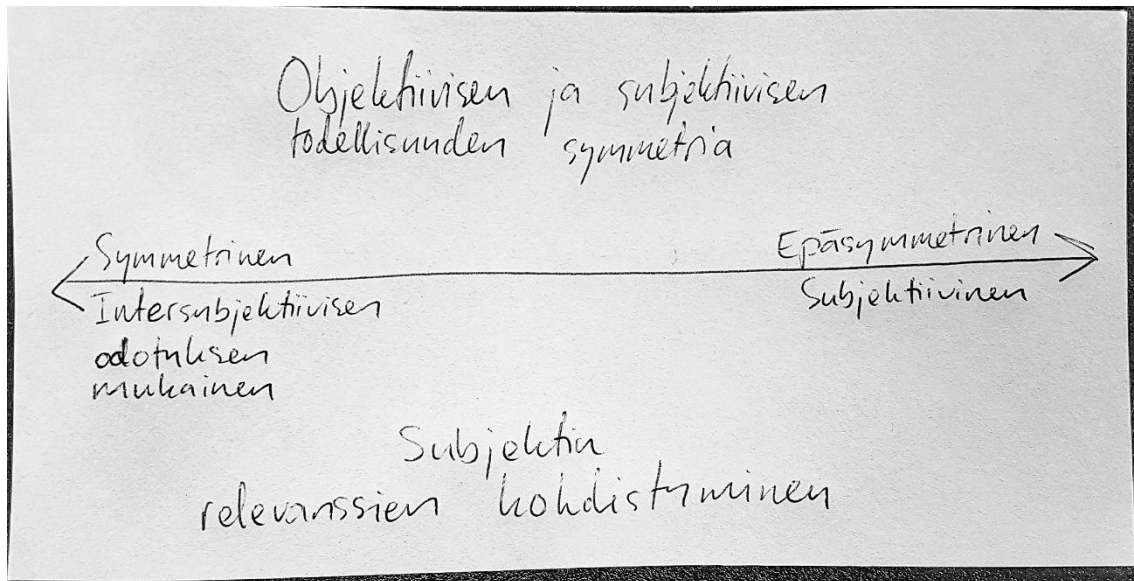 Objektiivisen ja subjektiivisen
todellisuuden symmetria
Symmetrinen
Epäsymmetrinen
Intersubjektiivisen
odotuksen
mukainen
Subjektiivinen
Subjektin
relevanssien kohdistuminen